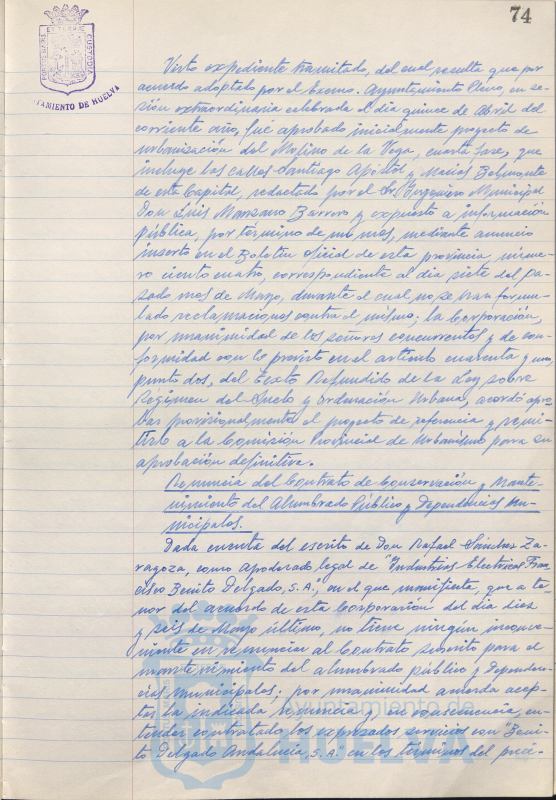 74
PORTUS MARIS ET TERRAE CUSTODIA
AYUNTAMIENTO DE HUELVA
Visto expediente tramitado, del cual resulta que por
acuerdo adoptado por el Excmo. Ayuntamiento Pleno, en se-
sión extraordinaria celebrada el día quince de Abril del
corriente año, fué aprobado inicialmente proyecto de
urbanización del Molino de la Vega, cuarta fase, que
incluye las calles Santiago Apóstol y Macías Belmonte
de esta Capital, redactado por el Sr. Ingeniero Municipal
Don Luis Manzano Barrero y expuesto a información
pública, por término de un mes, mediante anuncio
inserto en el Boletín oficial de esta provincia, núme-
ro ciento cuatro, correspondiente al día siete del pa-
sado mes de Mayo, durante el cual no se han formu-
lado reclamaciones contra el mismo; la Corporación,
por unanimidad de los señores concurrentes y de con-
formidad con lo previsto en el artículo cuarenta y uno,
punto dos, del Texto Refundido de la Ley sobre
Régimen del Suelo y Ordenación Urbana, acordó apro-
bar provisionalmente el proyecto de referencia y remi-
tirlo a la Comisión Provincial de Urbanismo para su
aprobación definitiva.
Renuncia del Contrato de Conservación y Mante-
nimiento del Alumbrado Público y Dependencias Mu-
nicipales.
Dada cuenta del escrito de Don Rafael Sánchez Za-
ragoza, como apoderado legal de "Industrias Electricas Fran-
cisco Benito Delgado, S.A.", en el que manifiesta, que a te-
nor del acuerdo de esta Corporación del día diez
y seis de Mayo último, no tiene ningún inconve-
niente en renunciar al Contrato suscrito para el
mantenimiento del alumbrado público y Dependen-
cias Municipales; por unanimidad acuerda acep-
tar la indicada renuncia y, en consecuencia, en-
tender contratado los expresados servicios con "Beni-
to Delgado Andalucía, S.A." en los términos del plie-
Ayuntamiento de
HUELVA